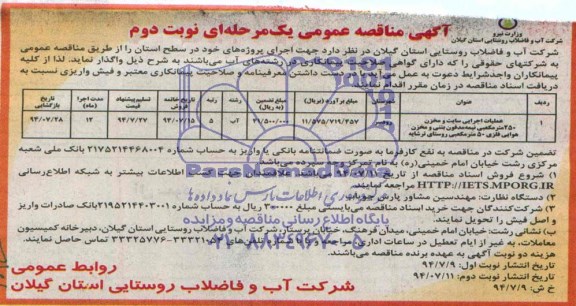 وزارت نیرو
شرکت آب و فاضلاب روستایی استان گیلان
آگهی مناقصه عمومی یک مرحله‌ای نوبت دوم
شرکت آب و فاضلاب روستایی استان گیلان در نظر دارد جهت اجرای پروژه‌های خود در سطح استان را از طریق مناقصه عمومی
به شرکتهای حقوقی را که دارای گواهی صلاحیت پیمانکاری در رشته‌های آب می‌باشند به شرح ذیل واگذار نماید. لذا از کلیه
پیمانکاران واجد شرایط دعوت به عمل می‌آید با در دست داشتن معرفینامه و صلاحیت پیمانکاری معتبر و فیش واریزی نسبت به
دریافت اسناد مناقصه در زمان مقرر اقدام نمایند.
ردیف عنوان مبلغ برآورد (بریال) مبلغ تضمین (به ریال) رشته رتبه تاریخ خاتمه فروش تسلیم پیشنهاد قیمت مدت اجرا (ماه) تاریخ بازگشایی
۱ عملیات اجرایی سایت و مخزن ۲۵۰ مترمکعبی نیمه‌مدفون بتنی و مخزن هوایی فلزی ۵۰ مترمکعبی روستای ترشایه ۱۱/۵۷۵/۷۱۹/۴۵۷ آب ۵ ۹۴/۰۷/۱۵ ۹۴/۷/۲۷ ۱۲ ۹۴/۰۷/۲۸
تضمین شرکت در مناقصه به نفع کارفرما به صورت ضمانتنامه بانکی یا واریز به حساب شماره ۲۱۷۵۲۱۴۴۶۸۰۰۴ بانک ملی شعبه
مرکزی رشت خیابان امام خمینی (ره) به نام تمرکز وجوه سپرده می‌باشد.
۱) شروع فروش اسناد مناقصه از تاریخ ۹۴/۷/۱۱ می‌باشد اطلاعات بیشتر به شبکه اطلاع‌رسانی
HTTP://IETS.MPORG.IR مراجعه نمایند.
۲) دستگاه نظارت: مهندسین مشاور پارس
۳) شرکت‌کنندگان جهت خرید اسناد مناقصه می‌بایستی مبلغ ۳۰۰۰۰۰ ریال به حساب شماره ۲۱۹۵۲۱۴۴۰۳۰۰۱ بانک صادرات واریز
و اصل فیش را تحویل نمایند.
ب) نشانی: رشت، خیابان امام خمینی، میدان فرهنگ، خیابان پرستار، شرکت آب و فاضلاب روستایی استان گیلان، دبیرخانه کمیسیون
معاملات، به غیر از ایام تعطیل در ساعات اداری مراجعه و یا تلفن ۳۳۳۲۵۷۷۶ تماس حاصل نمایند.
هزینه دو نوبت آگهی به عهده برنده مناقصه می‌باشد.
تاریخ انتشار نوبت اول: ۹۴/۷/۹
تاریخ انتشار نوبت دوم: ۹۴/۰۷/۱۱
خ ش: ۹۴/۷/۹
روابط عمومی
شرکت آب و فاضلاب روستایی استان گیلان
پایگاه اطلاع‌رسانی مناقصه و مزایده
۰۲۱-۸۸۳۴۹۶۷۰-۵